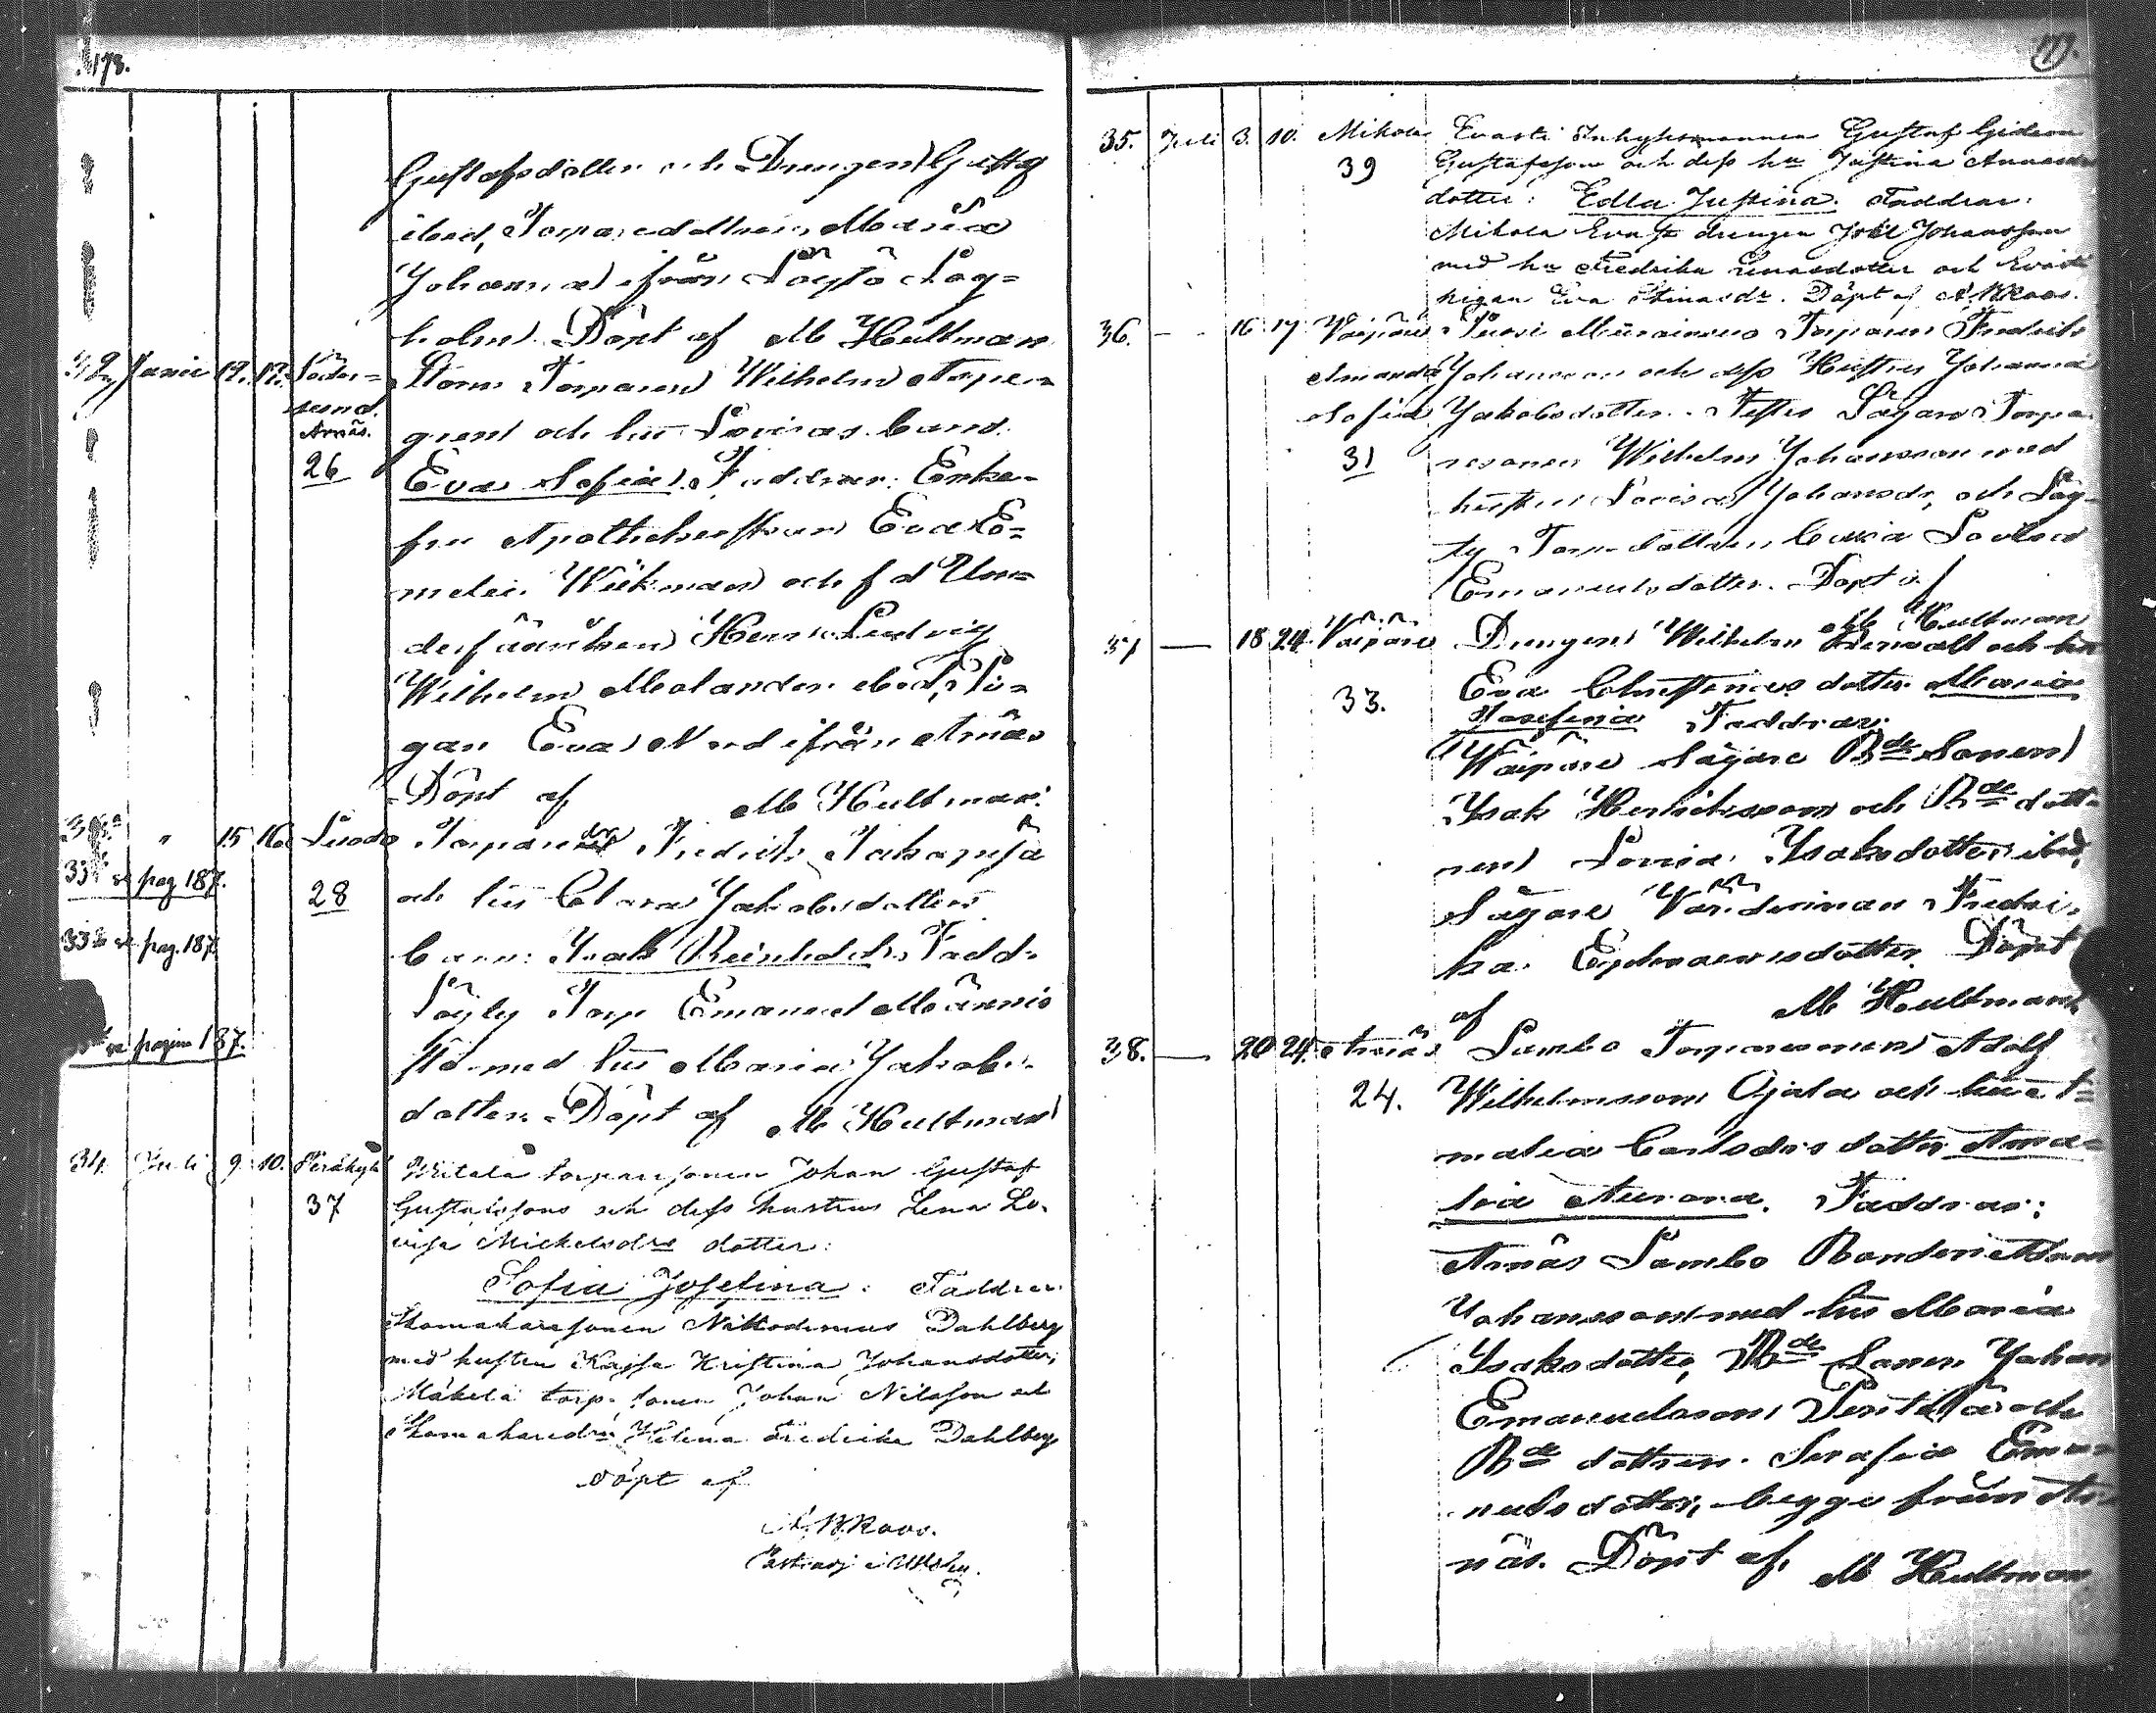 178.
Gustafsdotter och Drengen Gustaf
ibid, Torparedottren Maria
Johanna ifrån Löytö Lag-
holm. Döpt af M Hultman
32 Junii 12. 17. Söder-
sund.
Arnäs.
26
Storm Torparen Wilhelm
gren och hu Lovisas barn:
Eva Sofia. Faddrar: Enke-
fru Apothekerskan Eva E-
melie Wikman och f d Un-
derfänriken Herr Ludvig
Wilhelm Melander ibid, Pi-
gan Eva Nord ifrån Arnäs
Döpt af M Hultman.
" 15 16 Luodo
28
Fredrik
och hu Clara Jakobsdotters
barn: Isak Reinhold. Fadd.
Torp Emanuel Männis
tö med hu Maria Jakobs-
dotter. Döpt af M Hultman
33 se pag 187.
33 se pag. 187
se pagina 187.
34. Juli 9. 10.
37
Torparesonen Johan Gustaf
Gustafssons och dess hustrus Lena Lo-
visa Mickelsdrs dotter:
Sofia Josefina: Faddrar:
Skomakaresonen Nikodemus Dahlberg
med hustru Kajsa Kristina Johansdotter,
Mäkelä torp. sonen Johan Nilsson och
Skomakaredrn Helena Fredrika Dahlberg
Döpt af
A. W. Roos.
35. Juli 3. 10. Mikola
39
Evasti Inhysesmannen Gustaf Gideon
Gustafsson och dess hu Justina Annas
dotter: Edla Justina. Faddrar:
Mikola Evasti drengen Joel Johansson
med hu Fredrika Enasdotter och Evasti
pigan Eva Stinasdr. Döpt af A. W. Roos.
36. - 16 17 Vaipäre
Amanda
Sofia
31
Torparen Fredrik
Johansson och dess Hustru Johanna
Jakobsdotter. Testes Sägare Torpa-
resonen Wilhelm Johansson med
hustru Lovisa Johansdr, och
Torp dottren Caria Lovisa
Emanuelsdotter. Döpt af
M Hultman
37 — 18 24. Vaipäre
33.
Drengen Wilhelm och hu
Eva Christinas dotter Maria
Josefina Faddrar:
Waipäre Sägare Bde Sonen
Isak Henriksson och Bde dott-
ren Lovisa Isaksdotter ibid,
Sägare Värdinnan Fredri-
ka Ephraimsdotter. Döpt
af M Hultman.
38. — 20 24. Arnäs
24.
Sambo Torparesonen Adolf
Wilhelmsson Ojala och hu A-
malia Carlsdrs dotter Ama-
lia Aurora. Faddrar:
Arnäs Sambo Bonden Adam
Johansson med hu Maria
Isaksdotter, Bde Sonen Johan
Emanuelsson Penttilä och
Bde dottren Serafia Ema-
nuelsdotter, begge från Ar-
näs. Döpt af, M Hultman